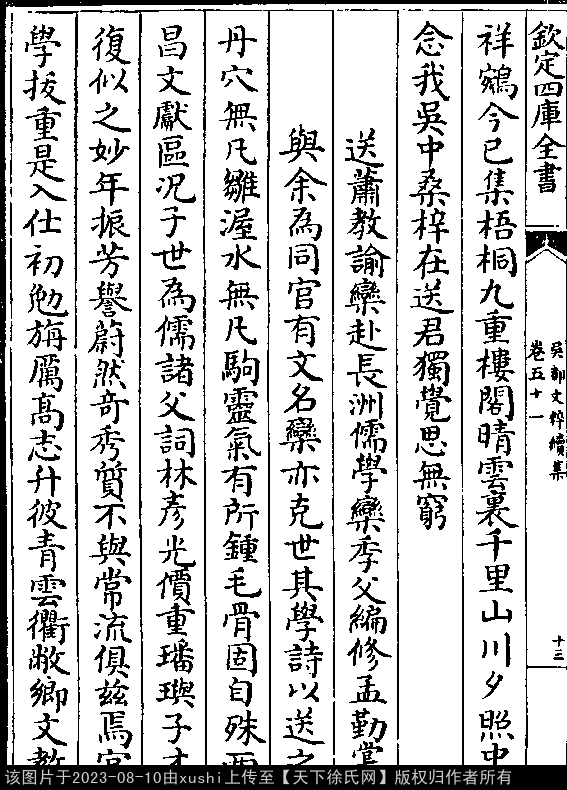 欽定四庫全書
吳都文粹續集
卷五十一
十三
祥鵷今已集梧桐九重樓閣晴雲裏千里山川夕照中
念我吳中桑梓在送君獨覺思無窮
送蕭教諭欒赴長洲儒學欒季父編修孟勤嘗
與余為同官有文名欒亦克世其學詩以送之
丹穴無凡雛渥水無凡駒靈氣有所鍾毛骨固自殊西
昌文獻區況子世為儒諸父詞林彥光價重璠璵子才
復似之妙年振芳譽蔚然竒秀質不與常流俱兹焉官
學拔重是入仕初勉旃厲髙志升彼青雲衢敝鄉文教
该图片于2023-08-10由xushi上传至【天下徐氏网】版权归作者所有